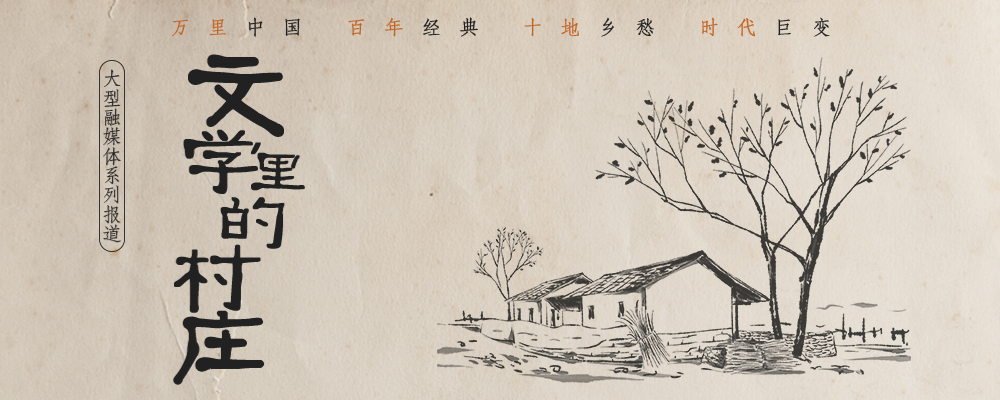 万里中国 百年经典 十地乡愁 时代巨变
大型融媒体系列报道
文学里的村庄